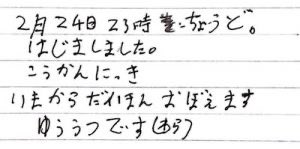 2月24日23時ちょうど。
はじましました。
こうかんにっき
いまからだいほんおぼえます
ゆううつです(あら)